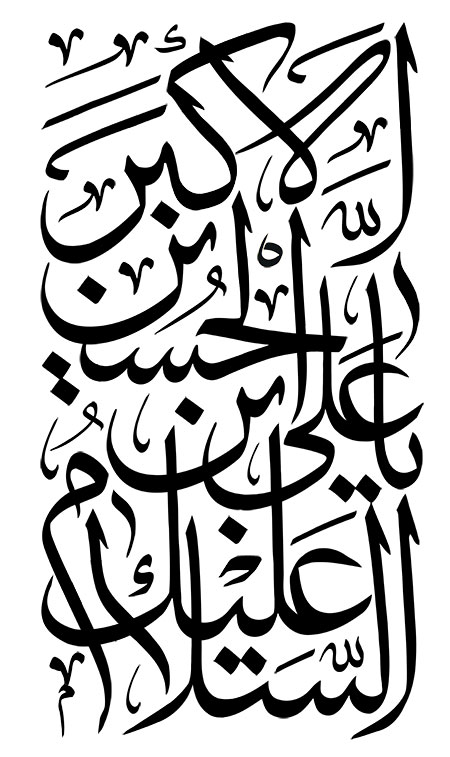 السَّلامُ عَلَيْكَ
يا عَلي ابن
الْحُسَين
الأَكبَر